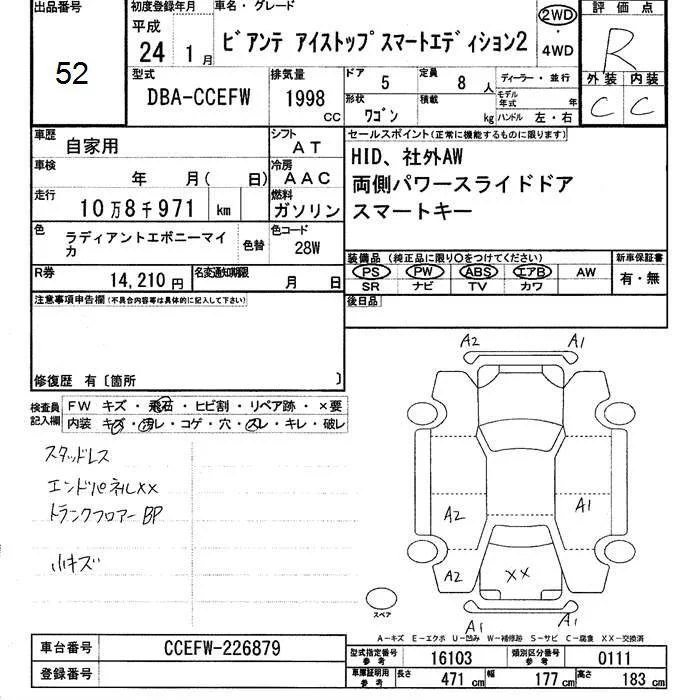 出品番号
52
初度登録年月
平成
24 1月
車名・グレード
ビアンテ アイストップスマートエディション2
2WD
・
4WD
評価点
R
外装 内装
C C
型式
DBA-CCEFW
排気量
1998
CC
ドア 5
定員 8人
形状
ワゴン
積載
kg
ディーラー・並行
モデル
年式 年
ハンドル 左・右
車歴 自家用
シフト
AT
車検
年 月( 日)
冷房
AAC
走行
10万8千971 km
燃料
ガソリン
色
ラディアントエボニーマイ
カ
色替
色コード
28W
R券
14,210円
名変通知期限
月 日
セールスポイント(正常に機能するものに限ります)
HID、社外AW
両側パワースライドドア
スマートキー
装備品 (純正品に限り○をつけてください)
PS PW ABS エアB AW
SR ナビ TV カワ
新車保証書
有・無
後日品
注意事項申告欄(不具合内容等は具体的に記入して下さい)
修復歴 有〔箇所 〕
検査員
記入欄
FW キズ・飛石・ヒビ割・リペア跡・×要
内装 キズ・汚レ・コゲ・穴・スレ・キレ・破レ
スタッドレス
エンドパネルXX
トランクフロアーBP
小キズ
A2 A1
A2 A1
A2 XX
A1 A1
スペア
A－キズ E－エクボ U－凹み W－補修跡 S－サビ C－腐食 XX－交換済
車台番号
CCEFW-226879
登録番号
型式指定番号
参考
16103
類別区分番号
参考
0111
車庫証明用
参考
長さ 471cm
幅 177cm
高さ 183cm